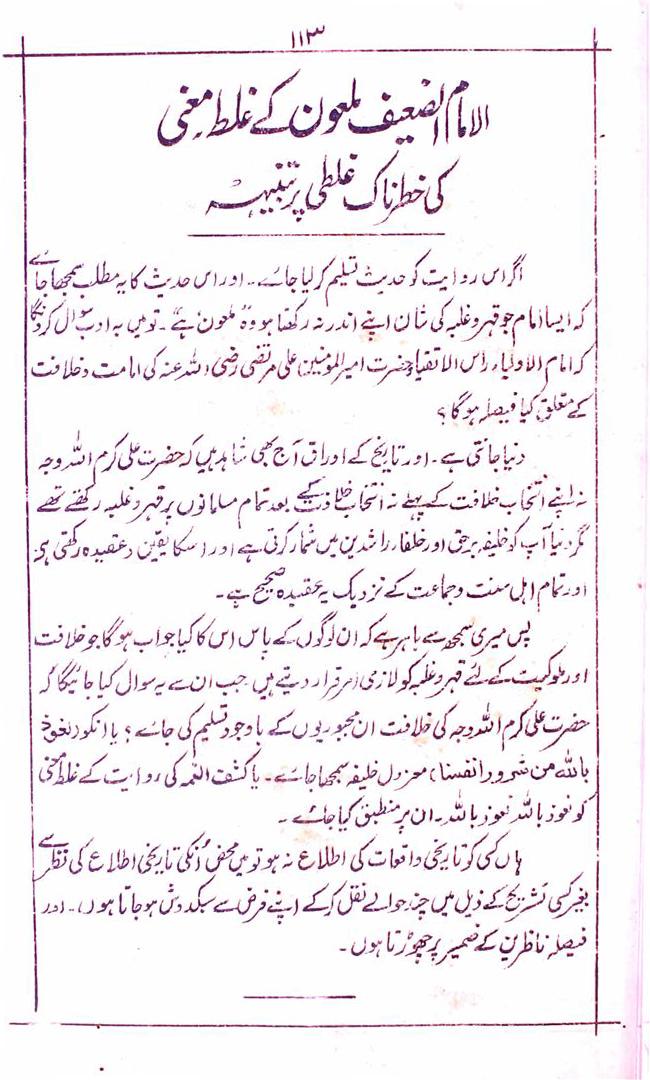 ۱۱۳
الامام الضعیف ملعون کے غلط معنی
کی خطرناک غلطی پر تنبیہہ
اگر اس روایت کو حدیث تسلیم کرلیا جائے۔ اور اس حدیث کا یہ مطلب سمجھا جائے
کہ ایسا امام جو قہر و غلبہ کی شان اپنے اندر نہ رکھتا ہو وہ ملعون ہے"۔ تو میں بہ ادب سوال کرونگا
کہ امام الاولیاء راس الاتقیاء حضرت امیر المومنین علی مرتضی رضی اللہ عنہ کی امامت و خلافت
کے متعلق کیا فیصلہ ہوگا؟
دنیا جانتی ہے۔ اور تاریخ کے اوراق آج بھی شاہد ہیں کہ حضرت علی کرم اللہ وجہ
نہ اپنے انتخاب خلافت کے پہلے نہ انتخاب خلافت کے بعد تمام مسلمانوں پر قہر و غلبہ رکھتے تھے
مگر دنیا آپ کو خلیفہ برحق اور خلفاء راشدین میں شمار کرتی ہے اور اسکا یقین و عقیدہ رکھتی ہے
اور تمام اہل سنت و جماعت کے نزدیک یہ عقیدہ صحیح ہے۔
پس میری سمجھ سے باہر ہے کہ ان لوگوں کے پاس اس کا کیا جواب ہوگا جو خلافت
اور ملوکیت کے لئے قہر و غلبہ کو لازمی امر قرار دیتے ہیں جب ان سے یہ سوال کیا جائیگا کہ
حضرت علی کرم اللہ وجہ کی خلافت ان مجبوریوں کے باوجود تسلیم کی جائے؟ یا انکو (نعوذ
باللہ من شرور انفسنا) معزول خلیفہ سمجھا جائے۔ یا کشف الغمہ کی روایت کے غلط معنی
کو نعوذ باللہ نعوذ باللہ۔ ان پر منطبق کیا جائے۔
ہاں کسی کو تاریخی واقعات کی اطلاع نہ ہو تو میں محض انکی تاریخی اطلاع کی نظر سے
بغیر کسی تشریح کے ذیل میں چند حوالے نقل کرکے اپنے فرض سے سبکدوش ہوجاتا ہوں۔ اور
فیصلہ ناظرین کے ضمیر پر چھوڑتا ہوں۔